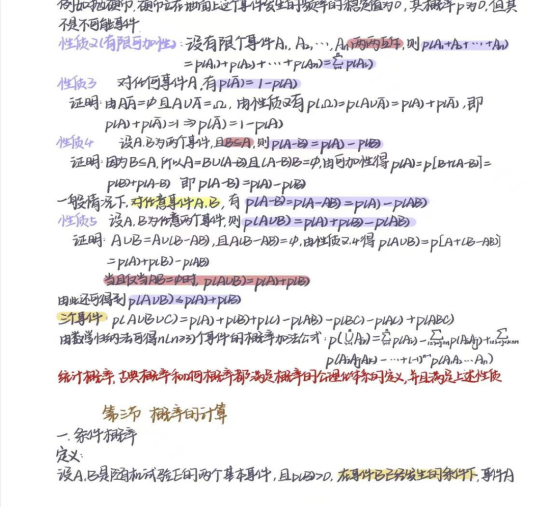 例如抛硬币,硬币立在地面上这个事件发生的频率的稳定值为0,其概率p为0,但其
不是不可能事件
性质2(有限可加性):设有限个事件A₁,A₂,…,Aₙ两两互斥,则p(A₁+A₂+…+Aₙ)
=p(A₁)+p(A₂)+…+p(Aₙ)=∑p(Aᵢ)
性质3 对任何事件A,有p(A̅)=1-p(A)
证明:由AA̅=φ且A∪A̅=Ω,由性质2有p(Ω)=p(A∪A̅)=p(A)+p(A̅),即
p(A)+p(A̅)=1⇒p(A̅)=1-p(A)
性质4 设A.B为两个事件,且B⊆A,则p(A-B)=p(A)-p(B)
证明:因为B⊆A,所以A=B∪(A-B)且(A-B)B=φ,由可加性得p(A)=p[B+(A-B)]=
p(B)+p(A-B) 即p(A-B)=p(A)-p(B)
一般情况下,对任意事件A.B,有p(A-B)=p(A-AB)=p(A)-p(AB)
性质5 设A.B为任意两个事件,则p(A∪B)=p(A)+p(B)-p(AB)
证明:A∪B=A∪(B-AB),且A(B-AB)=φ,由性质2.4得p(A∪B)=p[A+(B-AB)]
=p(A)+p(B)-p(AB)
当且仅当AB=φ时,p(A∪B)=p(A)+p(B)
由此还可得到p(A∪B)≤p(A)+p(B)
三个事件 p(A∪B∪C)=p(A)+p(B)+p(C)-p(AB)-p(BC)-p(AC)+p(ABC)
由数学归纳法可得n(n≥3)个事件的概率加法公式:
统计概率,古典概率和几何概率都满足概率的公理化体系的定义,并且满足上述性质
第三节 概率的计算
一.条件概率
定义:
设A.B是随机试验E的两个基本事件,且p(B)>0,在事件B已经发生的条件下,事件A